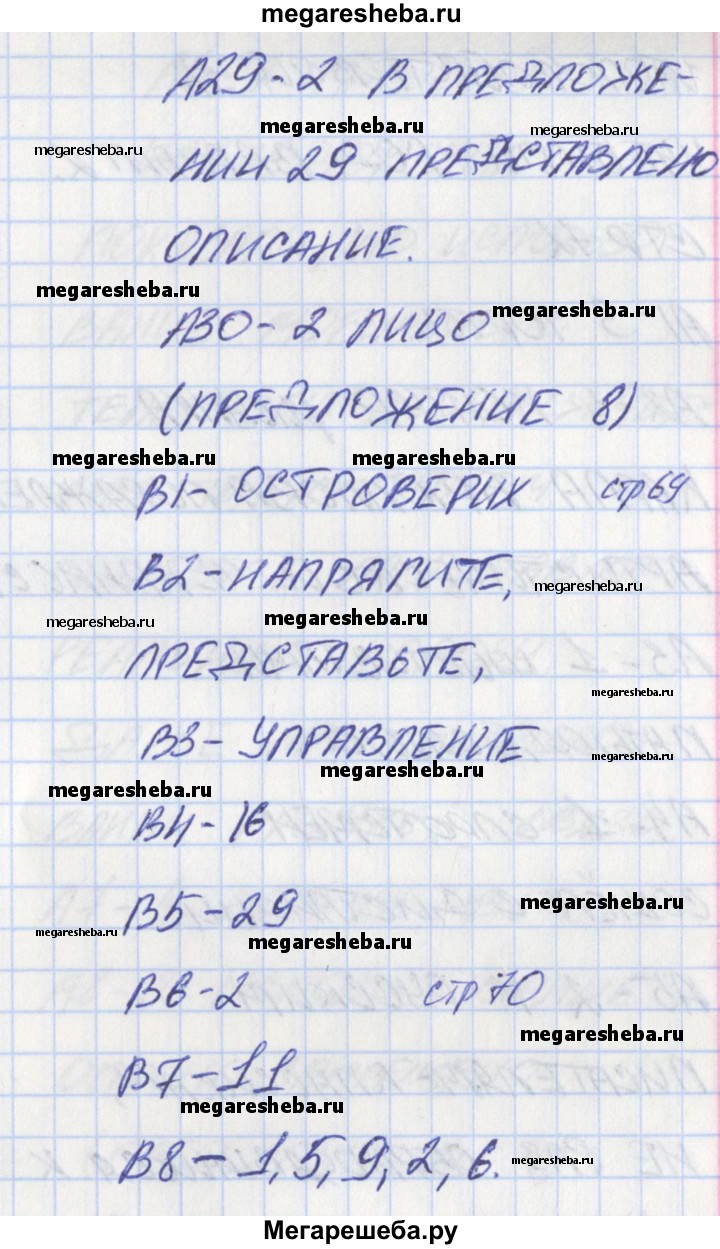 megaresheba.ru
А29-2 В ПРЕДЛОЖЕ-
megaresheba.ru megaresheba.ru
megaresheba.ru
НИИ 29 ПРЕДСТАВЛЕНО
ОПИСАНИЕ.
megaresheba.ru
megaresheba.ru
А30-2 ЛИЦО
(ПРЕДЛОЖЕНИЕ 8)
megaresheba.ru megaresheba.ru
В1- ОСТРОВЕРХИХ стр 69
В2-НАПРЯГИТЕ,
megaresheba.ru
megaresheba.ru megaresheba.ru
ПРЕДСТАВЬТЕ,
megaresheba.ru
В3- УПРАВЛЕНИЕ
megaresheba.ru
megaresheba.ru
megaresheba.ru
В4-16
megaresheba.ru
В5-29
megaresheba.ru
megaresheba.ru
В6-2 стр 70
megaresheba.ru
В7-11
megaresheba.ru
В8-1,5,9,2,6.
megaresheba.ru
Мегарешеба.ру